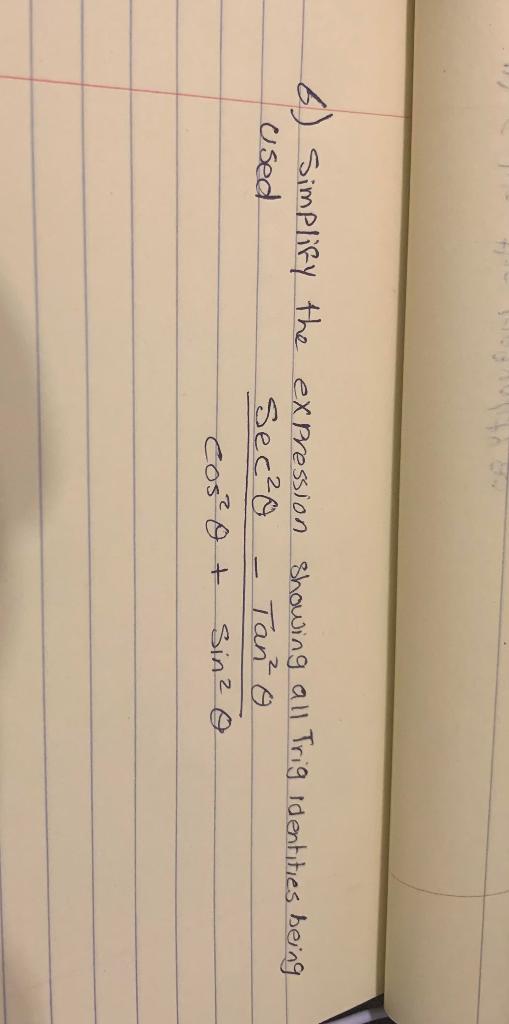 6) Simplify the expression showing all Trig identities being
used
Sec²θ - Tan²θ
cos²θ + sin²θ